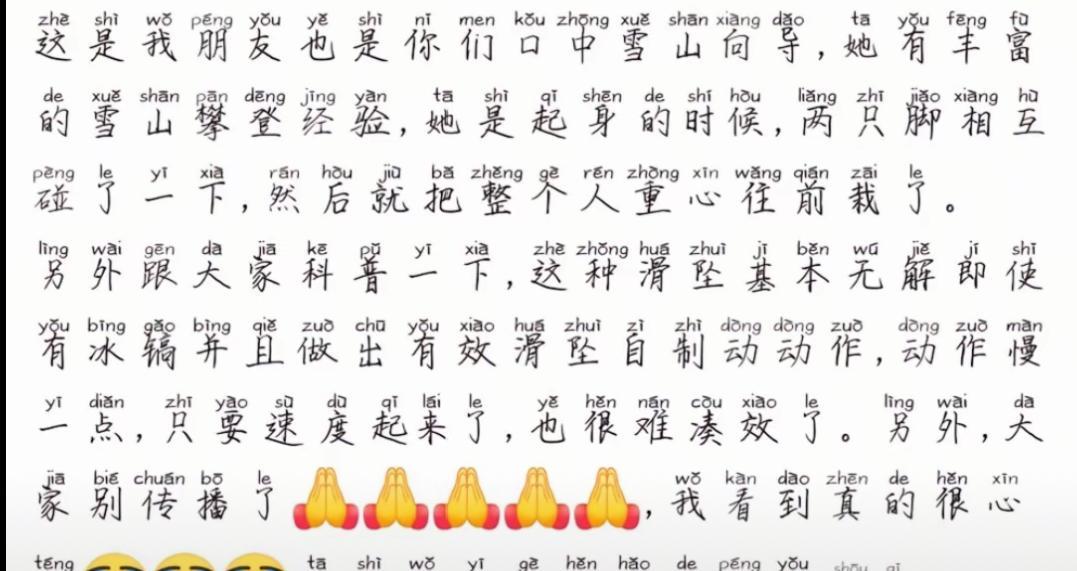 zhè shì wǒ péng yǒu yě shì nǐ men kǒu zhōng xuě shān xiàng dǎo tā yǒu fēng fù
这是我朋友也是你们口中雪山向导，她有丰富
de xuě shān pān dēng jīng yàn tā shì qǐ shēn de shí hòu liǎng zhī jiǎo xiāng hù
的雪山攀登经验，她是起身的时候，两只脚相互
pèng le yī xià rán hòu jiù bǎ zhěng gè rén zhòng xīn wǎng qián zāi le
碰了一下，然后就把整个人重心往前栽了。
lìng wài gēn dà jiā kē pǔ yī xià zhè zhǒng huá zhuì jī běn wú jiě jí shǐ
另外跟大家科普一下，这种滑坠基本无解即使
yǒu bīng gǎo bìng qiě zuò chū yǒu xiào huá zhuì zì zhì dòng dòng zuò dòng zuò màn
有冰镐并且做出有效滑坠自制动动作，动作慢
yī diǎn zhǐ yào sù dù qǐ lái le yě hěn nán còu xiào le lìng wài dà
一点，只要速度起来了，也很难凑效了。另外，大
jiā bié chuán bō le wǒ kàn dào zhēn de hěn xīn
家别传播了🙏🙏🙏🙏🙏，我看到真的很心
téng tā shì wǒ yī gè hěn hǎo de péng yǒu